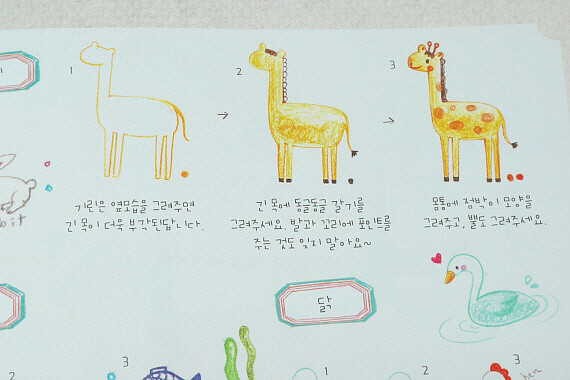 1
2
3
기린은 옆모습을 그려주면
긴 목이 더욱 부각된답니다.
긴 목에 동글동글 갈기를
그려주세요. 발과 꼬리에 포인트를
주는 것도 잊지 말아요~
몸통에 점박이 모양을
그려주고, 뿔도 그려주세요.
닭
3
1
2
3
hen